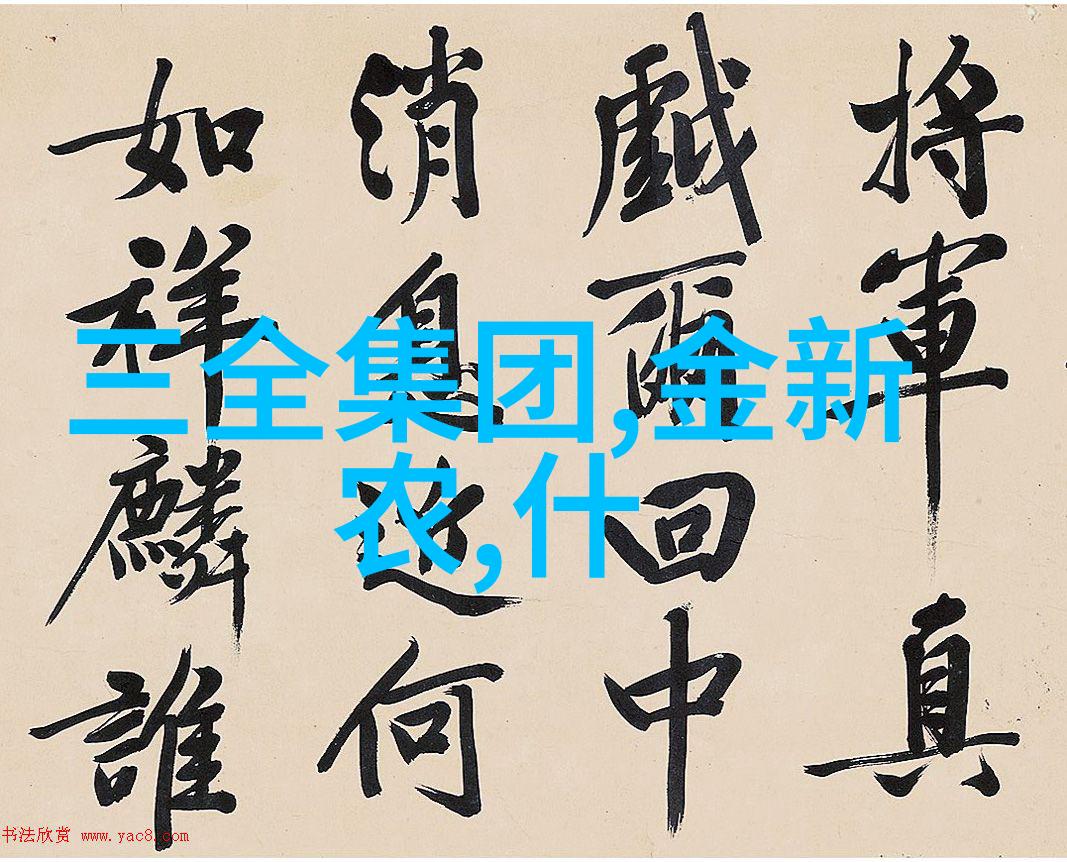 将軍真
戯爾回中
消息近何
如祥麟誰
三全集团,金新
农,什
书法欣赏 www.yac8.com